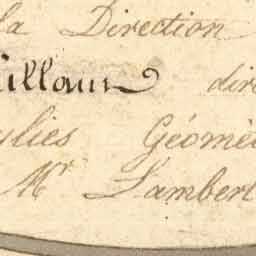 la Direction
illaun dir
ylies Géomè
Mr Lambert